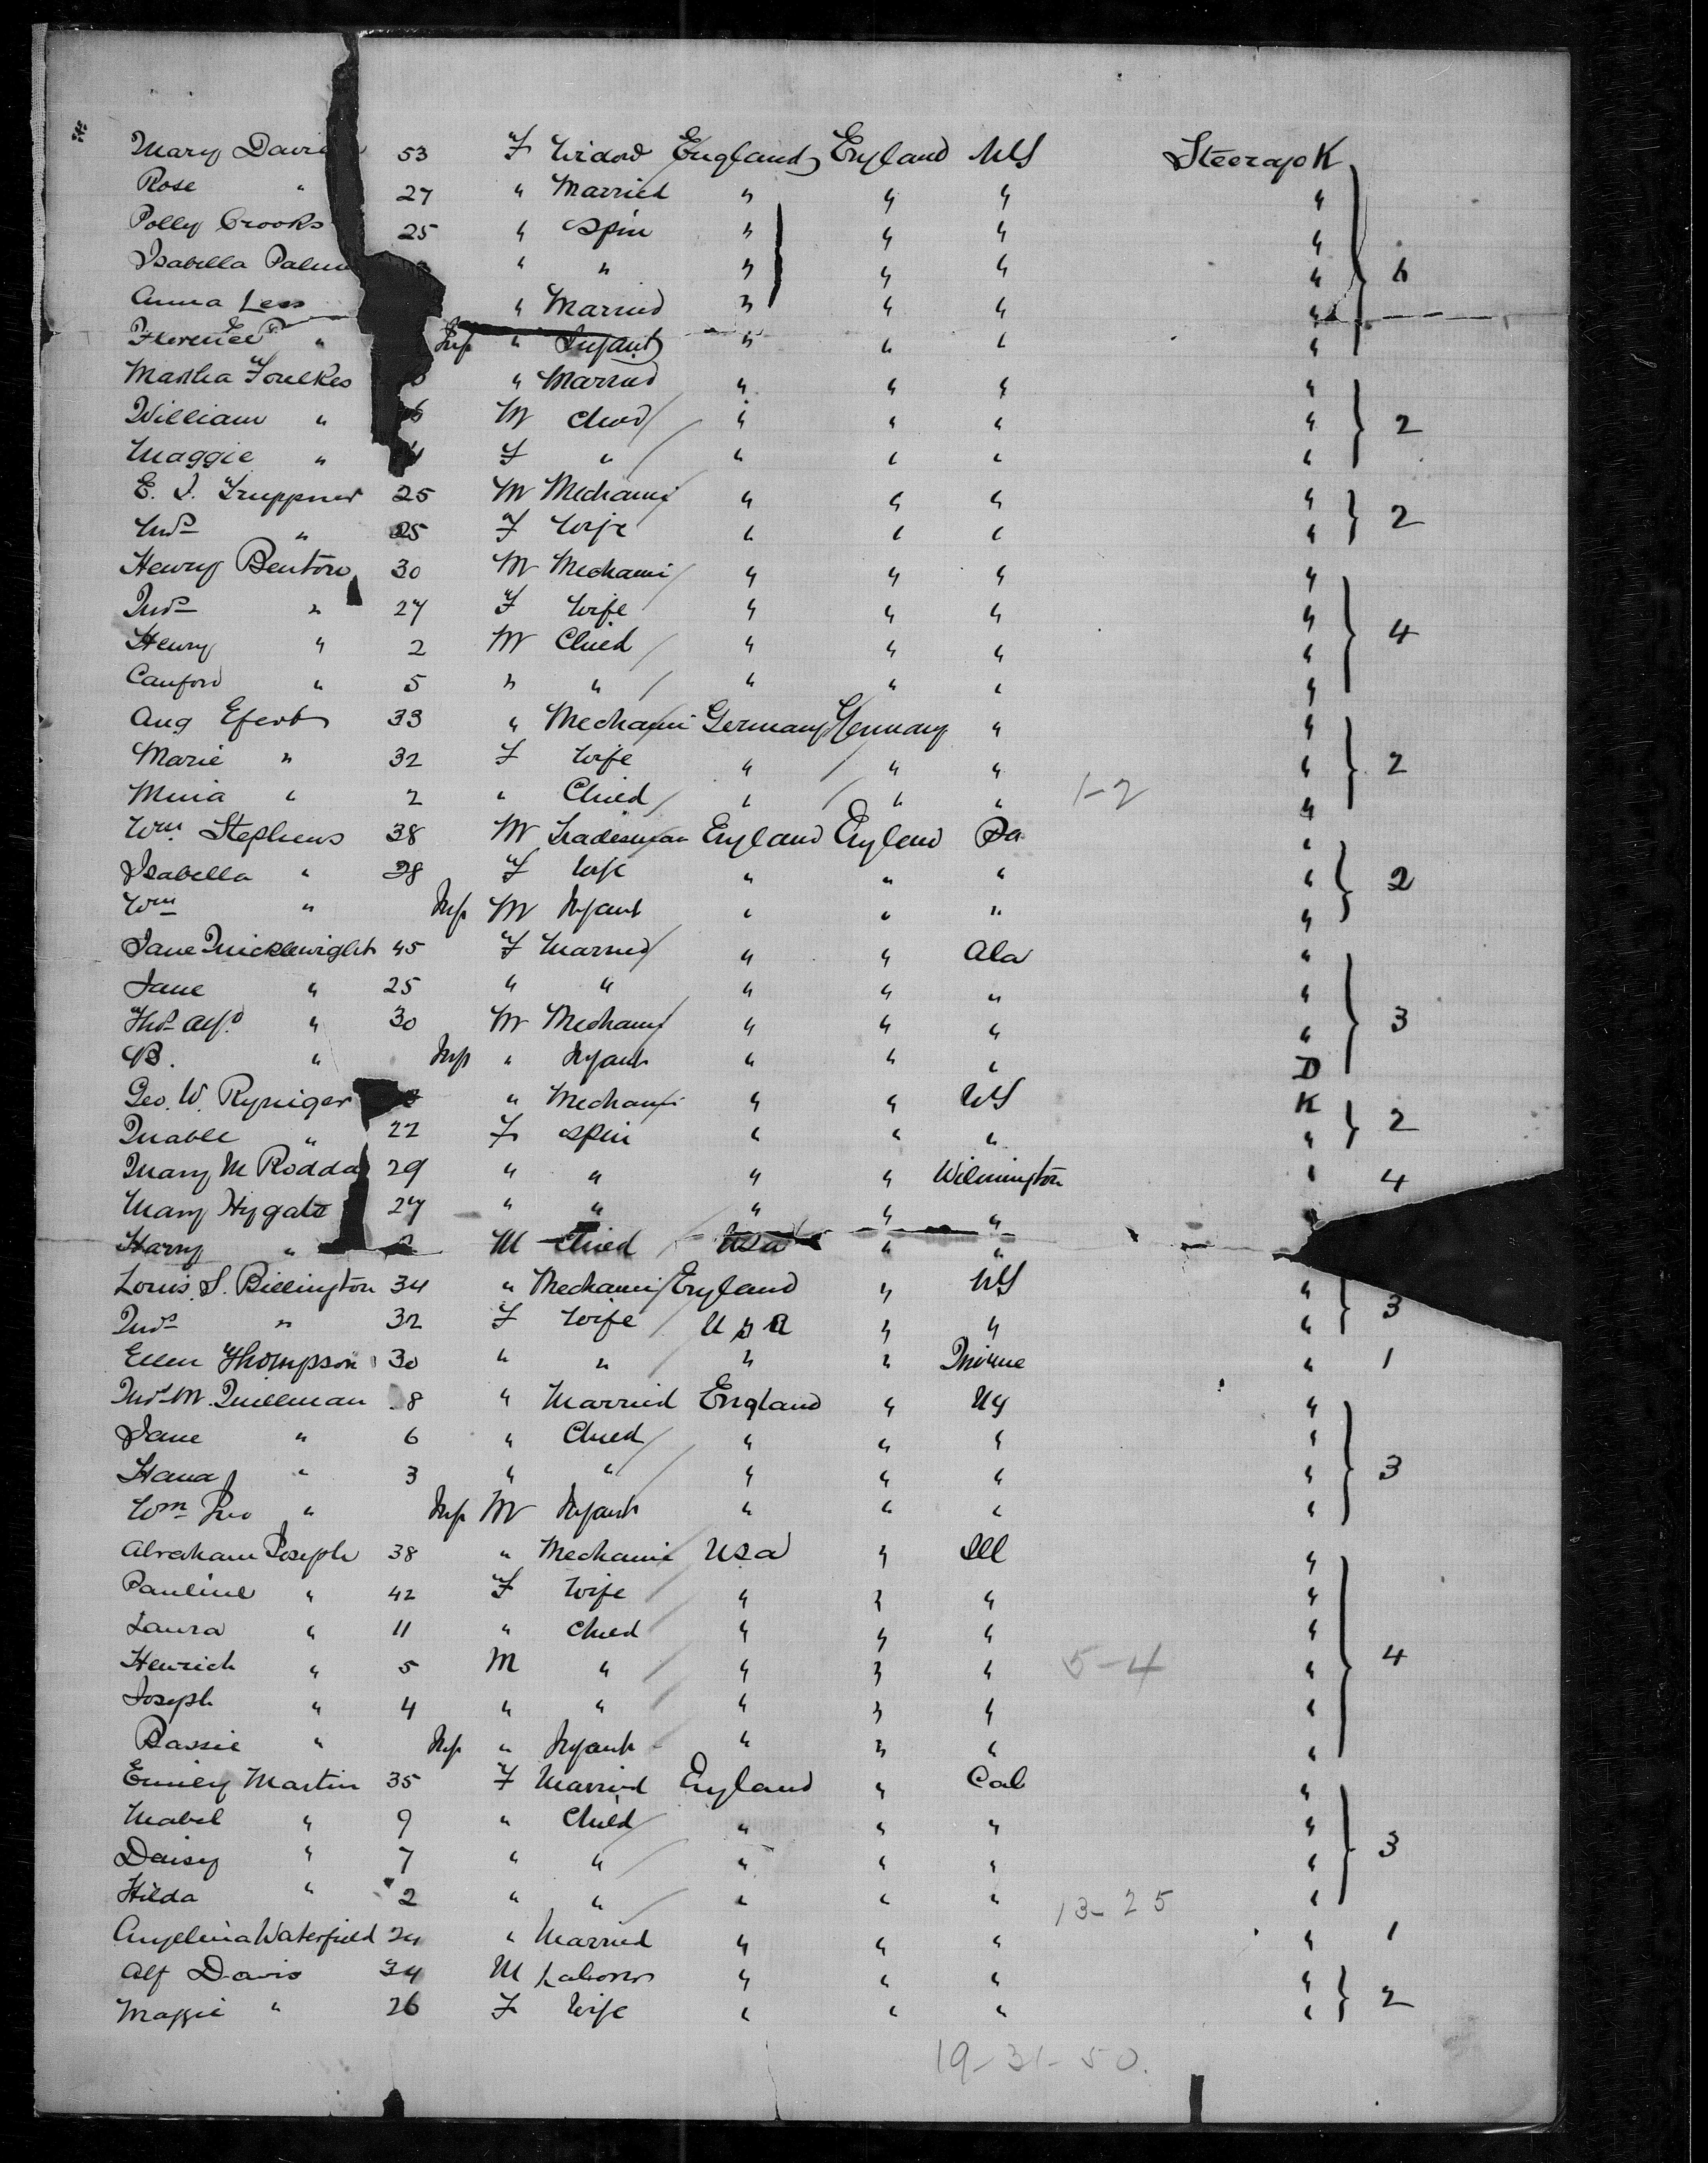 Mary Davi 53 F Widow England England US Steerage K
Rose " 27 " Married " " " "
Polly Crooks 25 " Spin " " " "
Isabella Palm " " " " " " 6
Anna Less " Married " " " "
Florence E " Inf " Infant " " " "
Martha Foulkes " Married " " " "
William " 6 M Child " " " " 2
Maggie " 4 F " " " " "
E. J. 25 M Mechanic " " " " 2
Mrs " 25 F Wife " " " "
Henry Benton 30 M Mechanic " " " "
Mrs " 27 F Wife " " " "
Henry " 2 M Child " " " " 4
Canford " 5 " " " " " "
Aug Efert 33 " Mechanic Germany Germany " "
Marie " 32 F Wife " " " " 2
Mina " 2 " Child " " " 1-2 "
Wm Stephens 38 M Tradesman England England Pa "
Isabella " 28 F Wife " " " " 2
Wm " Inf M Infant " " " "
Jane Micklewright 45 F Married " " Ala "
Jane " 25 " " " " " "
Thos Alfd " 30 M Mechanic " " " " 3
B. " Inf " Infant " " " D
Geo. W. Ryniger " Mechanic " " US K
Mable " 22 F Spin " " " " 2
Mary M Rodda 29 " " " " Wilmington " 4
Mary Hygate 27 " " " " "
Harry " M Child USA " "
Louis S. Billington 34 " Mechanic England " US "
Mrs " 32 F Wife USA " " " 3
Ellen Thompson 30 " " " " " 1
Mrs M. Quillman 8 " Married England " Ny "
Jane " 6 " Child " " " "
Hana " 3 " " " " " " 3
Wm " Inf M Infant " " " "
Abraham Joseph 38 " Mechanic USA " Ill "
Pauline " 42 F Wife " " " "
Laura " 11 " Child " " " "
Henrich " 5 M " " " " 5-4 " 4
Joseph " 4 " " " " " "
Bassie " Inf " Infant " " " "
Emily Martin 35 F Married England " Cal "
Mabel " 9 " Child " " " "
Daisy " 7 " " " " " " 3
Hilda " 2 " " " " " 13-25 "
Angelina Waterfield 24 " Married " " " " 1
Alf Davis 34 M Laborer " " " "
Maggie " 26 F Wife " " " " 2
19-31-50.